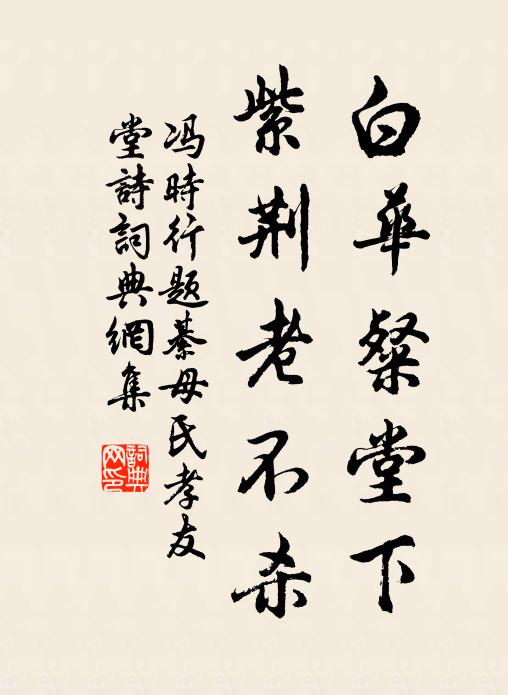 白華粲堂下
紫荆老不杀
冯時行题綦母氏孝友
堂詩詞典網集
詞典网印